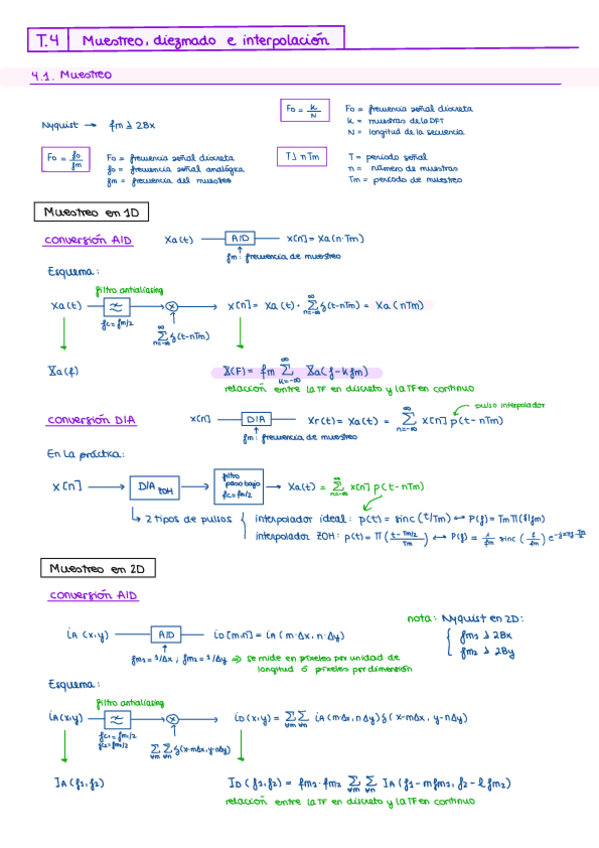 T.4 Muestreo, diezmado e interpolación
4.1. Muestreo
Nyquist → fm ≥ 2Bx
F0 = k/N
F0 = frecuencia señal discreta
k = muestras de la DFT
N = longitud de la secuencia
F0 = f0/fm
F0 = frecuencia señal discreta
f0 = frecuencia señal analógica
fm = frecuencia del muestreo
T = periodo señal
n = número de muestras
Tm = periodo de muestreo
Muestreo en 1D
conversión A/D
xa(t) — A/D — x[n] = xa(n·Tm)
fm: frecuencia de muestreo
Esquema:
filtro antialiasing
xa(t) → ≈ → ⊗ → x[n] = xa(t) · ∞ Σ n=-∞ δ(t-nTm) = xa(nTm)
fc = fm/2
∞ Σ n=-∞ δ(t-nTm)
Xa(f)
X(F) = fm ∞ Σ k=-∞ Xa(f-kfm)
relación entre la TF en discreto y la TF en continuo
conversión D/A
x[n] — D/A — xr(t) = xa(t) = ∞ Σ n=-∞ x[n] p(t-nTm)
pulso interpolador
fm: frecuencia de muestreo
En la práctica:
x[n] → D/A ZOH → filtro paso bajo fc=fm/2 → xa(t) = ∞ Σ n=-∞ x[n] p(t-nTm)
↳ 2 tipos de pulsos { interpolador ideal: p(t) = sinc(t/Tm) ↔ P(f) = Tm Π(f/fm)
interpolador ZOH: p(t) = Π((t-Tm/2)/Tm) ↔ P(f) = 1/fm sinc(f/fm)
Muestreo en 2D
conversión A/D
nota: Nyquist en 2D:
fm1 ≥ 2Bx
fm2 ≥ 2By
iA(x,y) — A/D — iD[m,n] = iA(m·Δx, n·Δy)
fm1 = 1/Δx ; fm2 = 1/Δy ⇒ se mide en píxeles por unidad de
longitud ó píxeles por dimensión
Esquema:
filtro antialiasing
iA(x,y) → ≈ → ⊗ → iD(x,y) = Σ∀m Σ∀n iA(mΔx, nΔy) δ(x-mΔx, y-nΔy)
fc1 = fm1/2
fc2 = fm2/2
Σ∀m Σ∀n δ(x-mΔx, y-nΔy)
IA(f1,f2)
ID(f1,f2) = fm1·fm2 Σ∀m Σ∀n IA(f1-mfm1, f2-lfm2)
relación entre la TF en discreto y la TF en continuo